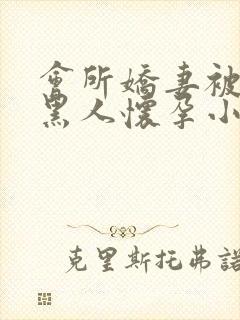 會所嬌妻被
黑人懷孕小
克里斯托弗諾